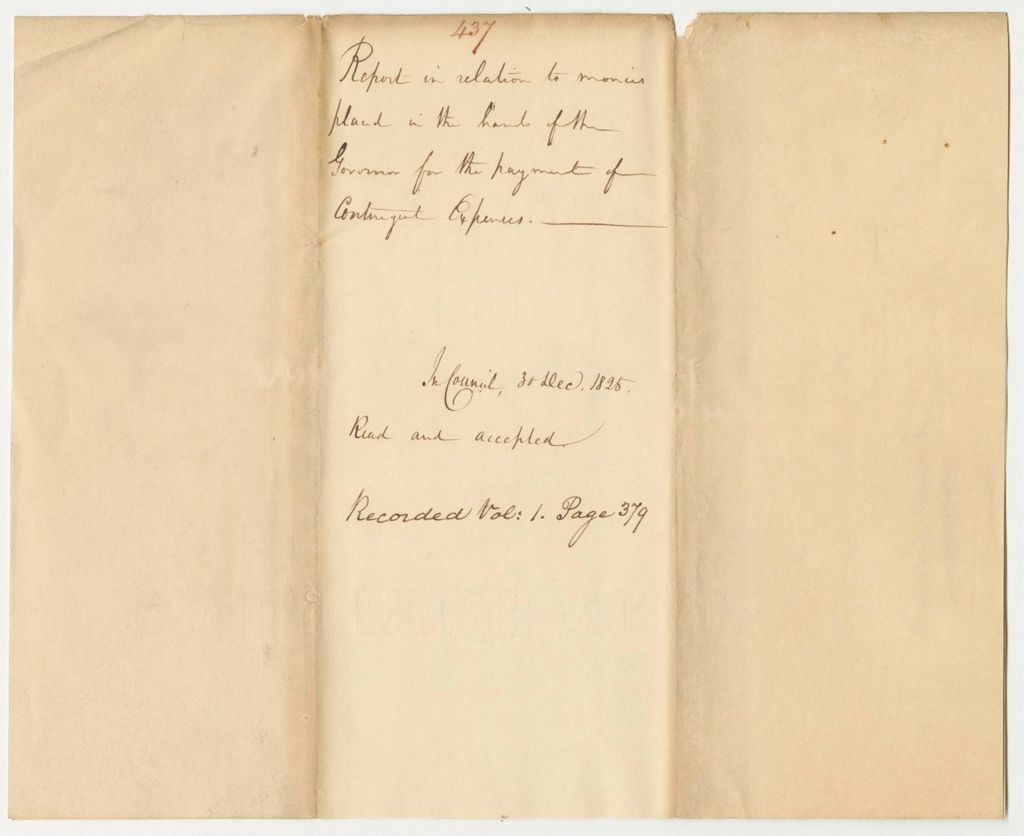 437
Report in relation to monies
placed in the hands of the
Governor for the payment of
Contingent Expenses.
In Council, 30 Dec. 1825.
Read and accepted
Recorded Vol: 1. Page 379